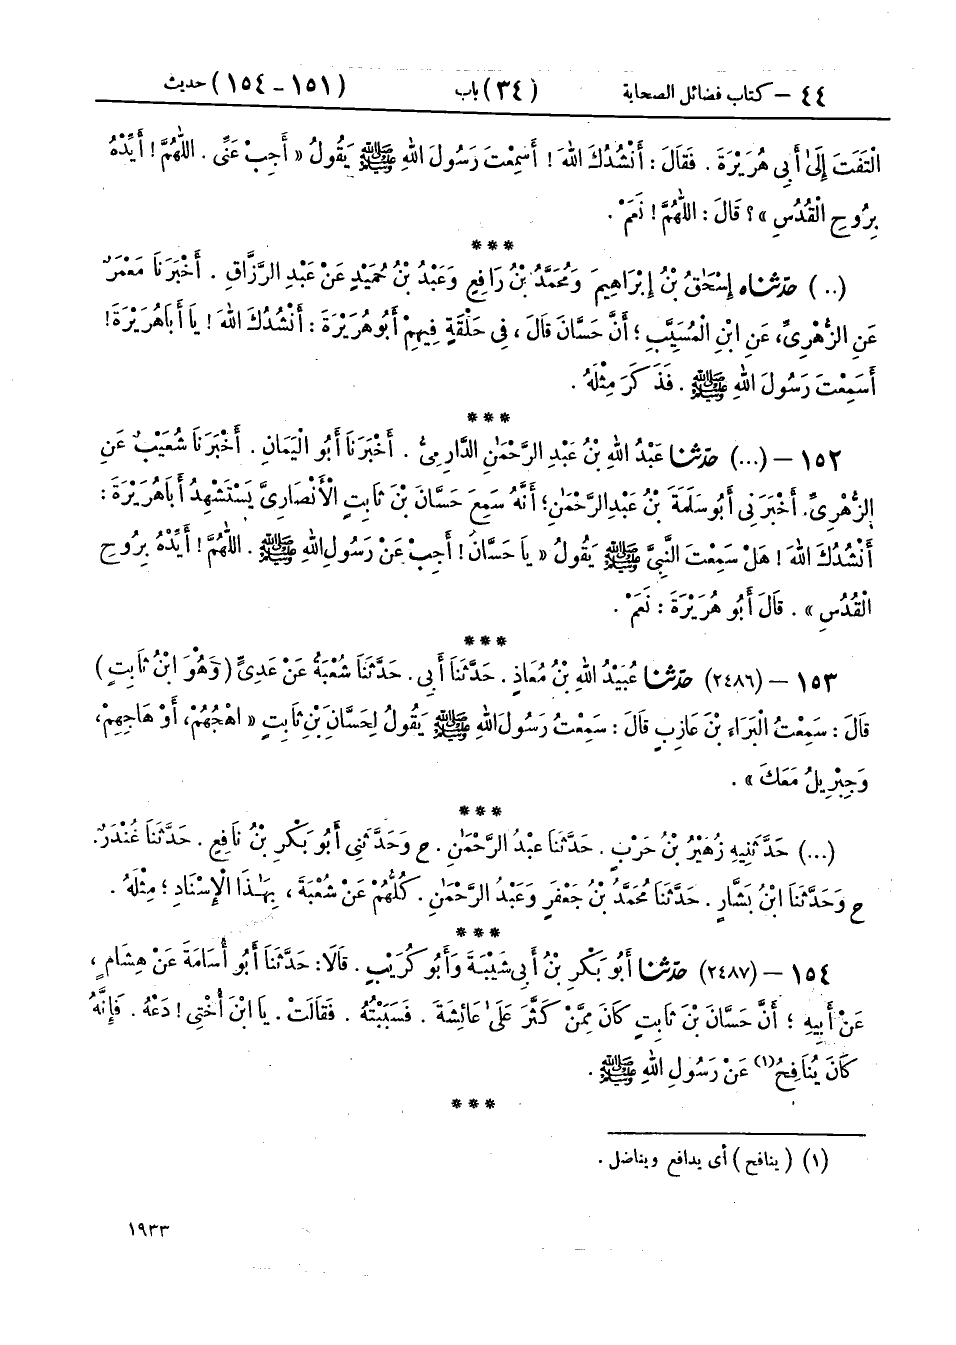 ٤٤ – كتاب فضائل الصحابة (٣٤) باب (١٥١ – ١٥٤) حديث
الْتَفَتَ إِلَىٰ أَبِي هُرَيْرَةَ . فَقَالَ : أَنْشُدُكَ اللهَ ! أَسَمِعْتَ رَسُولَ اللهِ ﷺ يَقُولُ « أَجِبْ عَنِّي . اللَّهُمَّ ! أَيِّدْهُ
بِرُوحِ الْقُدُسِ » ؟ قَالَ : اللَّهُمَّ ! نَعَمْ .
***
(..) حَدَّثَنَاه إِسْحَٰقُ بْنُ إِبْرَاهِيمَ وَمُحَمَّدُ بْنُ رَافِعٍ وَعَبْدُ بْنُ حُمَيْدٍ عَنْ عَبْدِ الرَّزَّاقِ . أَخْبَرَنَا مَعْمَرٌ
عَنِ الزُّهْرِيِّ، عَنِ ابْنِ الْمُسَيَّبِ ؛ أَنَّ حَسَّانَ قَالَ ، فِي حَلْقَةٍ فِيهِمْ أَبُو هُرَيْرَةَ : أَنْشُدُكَ اللهَ ! يَا أَبَا هُرَيْرَةَ !
أَسَمِعْتَ رَسُولَ اللهِ ﷺ . فَذَكَرَ مِثْلَهُ .
***
١٥٢ – (...) حَدَّثَنَا عَبْدُ اللهِ بْنُ عَبْدِ الرَّحْمَٰنِ الدَّارِمِيُّ . أَخْبَرَنَا أَبُو الْيَمَانِ . أَخْبَرَنَا شُعَيْبٌ عَنِ
الزُّهْرِيِّ. أَخْبَرَنِي أَبُو سَلَمَةَ بْنُ عَبْدِ الرَّحْمَٰنِ؛ أَنَّهُ سَمِعَ حَسَّانَ بْنَ ثَابِتٍ الْأَنْصَارِيَّ يَسْتَشْهِدُ أَبَا هُرَيْرَةَ :
أَنْشُدُكَ اللهَ ! هَلْ سَمِعْتَ النَّبِيَّ ﷺ يَقُولُ « يَا حَسَّانُ ! أَجِبْ عَنْ رَسُولِ اللهِ ﷺ . اللَّهُمَّ ! أَيِّدْهُ بِرُوحِ
الْقُدُسِ » . قَالَ أَبُو هُرَيْرَةَ : نَعَمْ .
***
١٥٣ – (٢٤٨٦) حَدَّثَنَا عُبَيْدُ اللهِ بْنُ مُعَاذٍ . حَدَّثَنَا أَبِي . حَدَّثَنَا شُعْبَةُ عَنْ عَدِيٍّ (وَهُوَ ابْنُ ثَابِتٍ)
قَالَ : سَمِعْتُ الْبَرَاءَ بْنَ عَازِبٍ قَالَ : سَمِعْتُ رَسُولَ اللهِ ﷺ يَقُولُ لِحَسَّانَ بْنِ ثَابِتٍ « اهْجُهُمْ، أَوْ هَاجِهِمْ،
وَجِبْرِيلُ مَعَكَ » .
***
(...) حَدَّثَنِيهِ زُهَيْرُ بْنُ حَرْبٍ . حَدَّثَنَا عَبْدُ الرَّحْمَٰنِ . ح وَحَدَّثَنِي أَبُو بَكْرِ بْنُ نَافِعٍ . حَدَّثَنَا غُنْدَرٌ.
ح وَحَدَّثَنَا ابْنُ بَشَّارٍ . حَدَّثَنَا مُحَمَّدُ بْنُ جَعْفَرٍ وَعَبْدُ الرَّحْمَٰنِ . كُلُّهُمْ عَنْ شُعْبَةَ ، بِهَٰذَا الْإِسْنَادِ ؛ مِثْلَهُ .
***
١٥٤ – (٢٤٨٧) حَدَّثَنَا أَبُو بَكْرِ بْنُ أَبِي شَيْبَةَ وَأَبُو كُرَيْبٍ . قَالَا : حَدَّثَنَا أَبُو أُسَامَةَ عَنْ هِشَامٍ ،
عَنْ أَبِيهِ ؛ أَنَّ حَسَّانَ بْنَ ثَابِتٍ كَانَ مِمَّنْ كَثَّرَ عَلَىٰ عَائِشَةَ . فَسَبَبْتُهُ . فَقَالَتْ . يَا ابْنَ أُخْتِي ! دَعْهُ . فَإِنَّهُ
كَانَ يُنَافِحُ(١) عَنْ رَسُولِ اللهِ ﷺ .
***
(١) (ينافح) أى يدافع ويناضل .
١٩٣٣